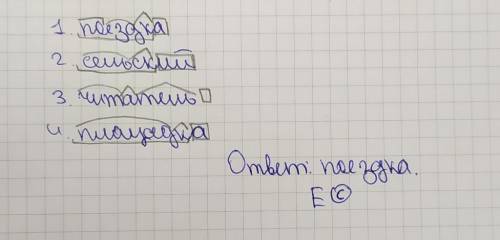 1. поездка
2. сельский
3. читатель
4. площадка
Ответ: поездка.
E ©